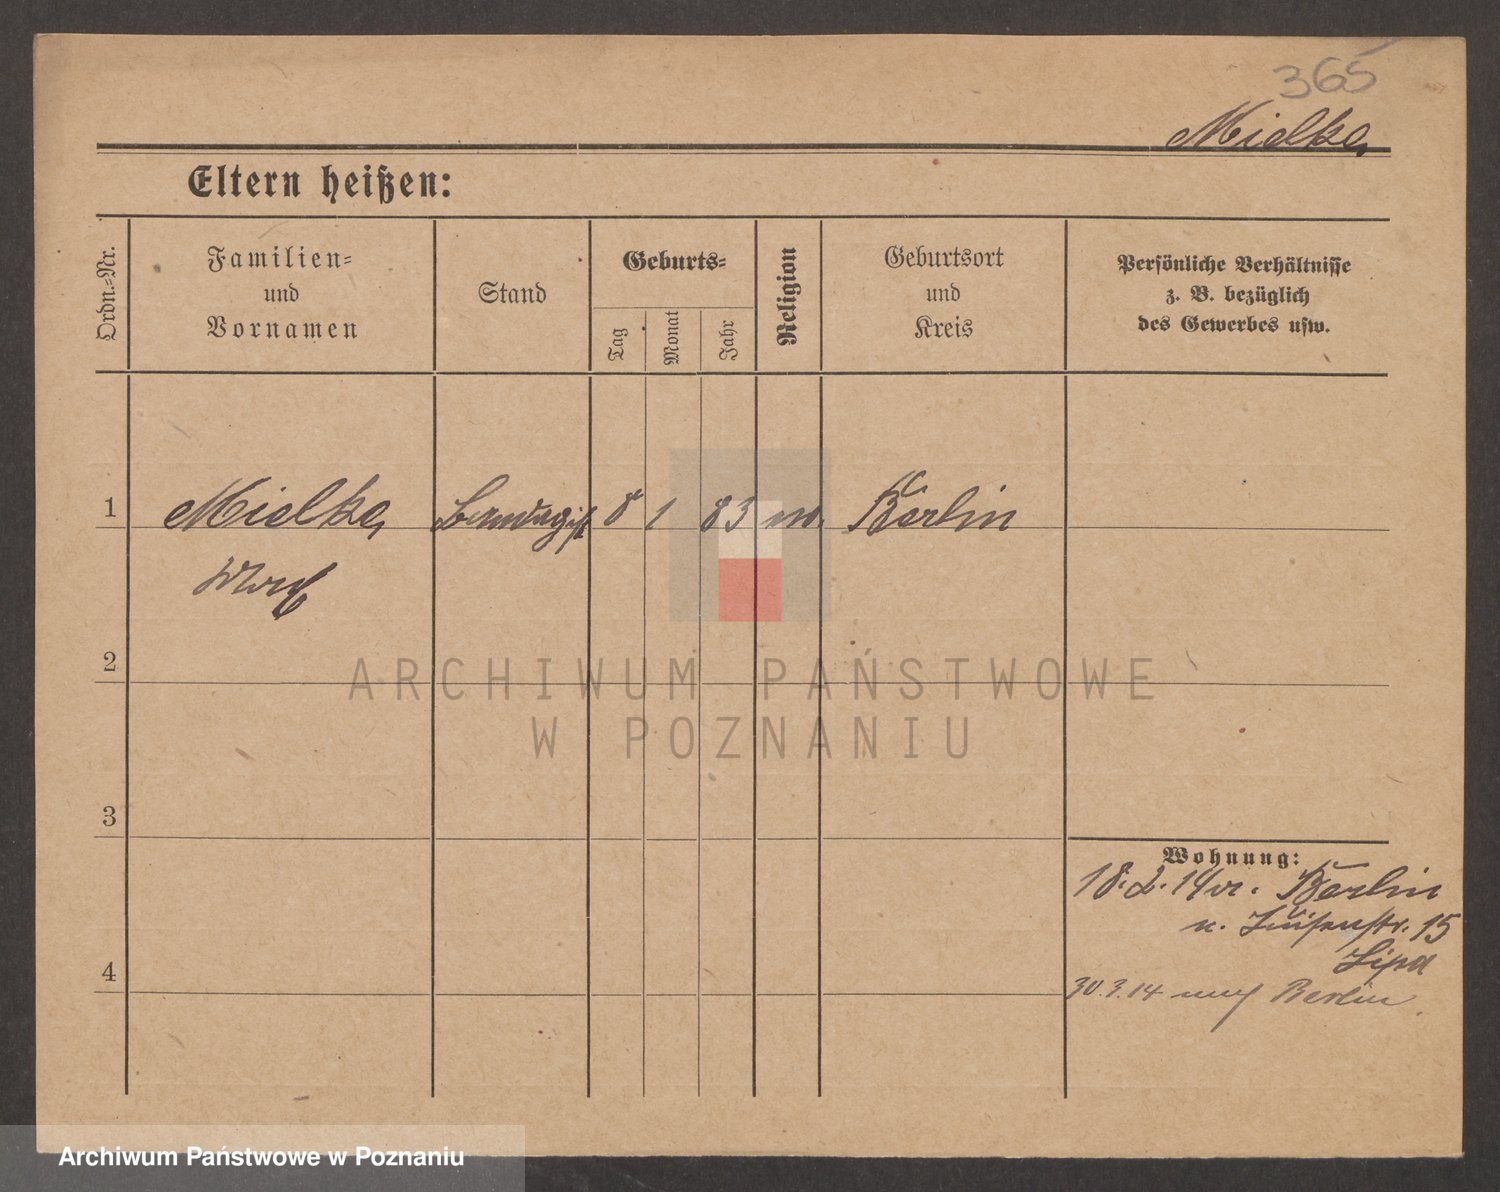 365
Mielke
Eltern heißen:
Ordn.-Nr.
Familien-
und
Vornamen
Stand
Geburts-
Tag
Monat
Jahr
Religion
Geburtsort
und
Kreis
Persönliche Verhältnisse
z. B. bezüglich
des Gewerbes usw.
1
Mielke
Bandagist
8
1
83
Berlin
2
ARCHIWUM PAŃSTWOWE
W POZNANIU
3
Wohnung:
18.2.14 Berlin
n. 15
4
30.3.14 nach Berlin
Archiwum Państwowe w Poznaniu